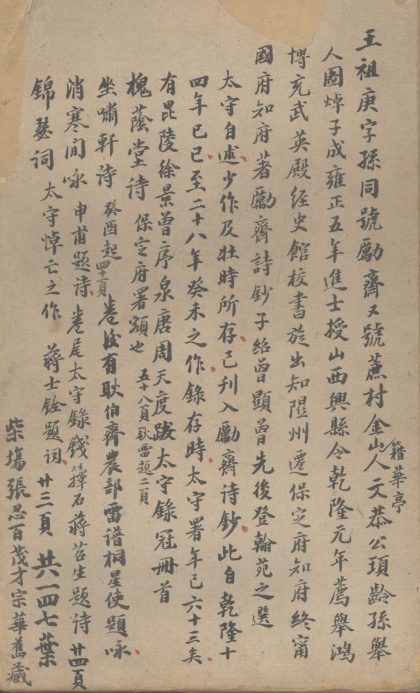 王祖庚字孫同號勵齋又號蔗村金山人文恭公頊齡孫舉
籍華亭
人圖焯子成雍正五年進士授山西興縣令乾隆元年薦舉鴻
博充武英殿經史館校書於出知隰州遷保定府知府終甯
國府知府著勵齋詩鈔子紹曾顯曾先後登翰苑之選
太守自述少作及壯時所存已刊入勵齋詩鈔此自乾隆十
四年己巳至二十八年癸未之作錄存時太守署年已六十三矣
有毘陵徐景曾序泉唐周天度跋太守錄冠冊首
槐蔭堂詩 保定府署額也 五十八頁耿雷題二頁
坐嘯軒詩 癸酉起四十頁 卷後有耿伯齋農部雷譜桐星使題咏
消寒閒咏 申甫題詩 卷尾太守錄錢籜石蔣苕生題詩 廿四頁
錦瑟詞 太守悼亡之作 蔣士銓題詞 廿三頁 共一四七葉
柴塲張思百茂才宗華舊藏